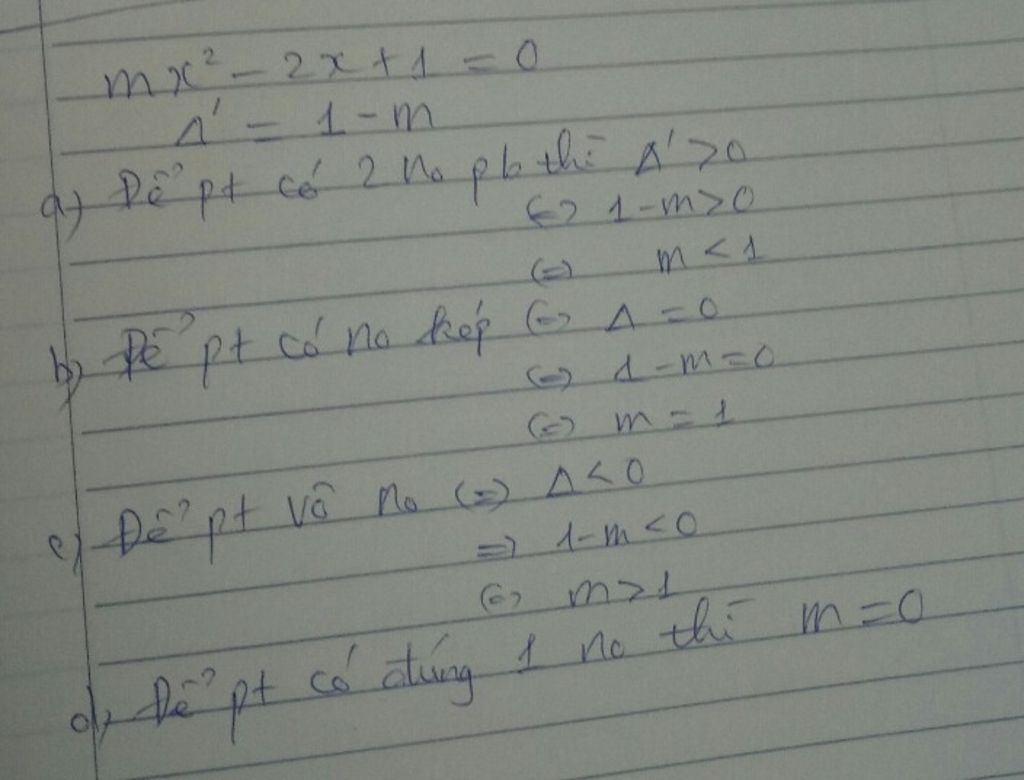 mx² - 2x + 1 = 0
Δ' = 1 - m
a) Để pt có 2 no pb thì Δ' > 0
<=> 1 - m > 0
<=> m < 1
b) Để pt có no kép <=> Δ = 0
<=> 1 - m = 0
<=> m = 1
c) Để pt vô no <=> Δ < 0
=> 1 - m < 0
<=> m > 1
d) Để pt có đúng 1 no thì m = 0